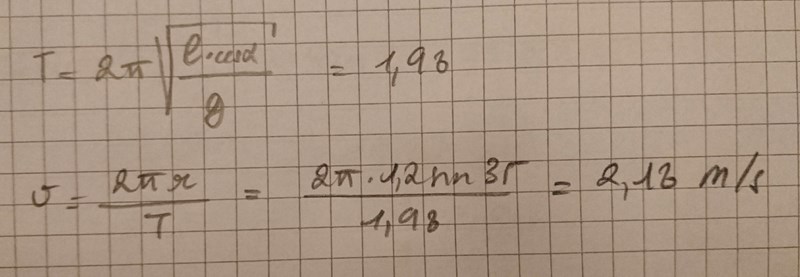 T = 2π √(l·cosα / g) = 1,98
v = 2πr / T = 2π · 1,2 / 1,98 = 2,13 m/s